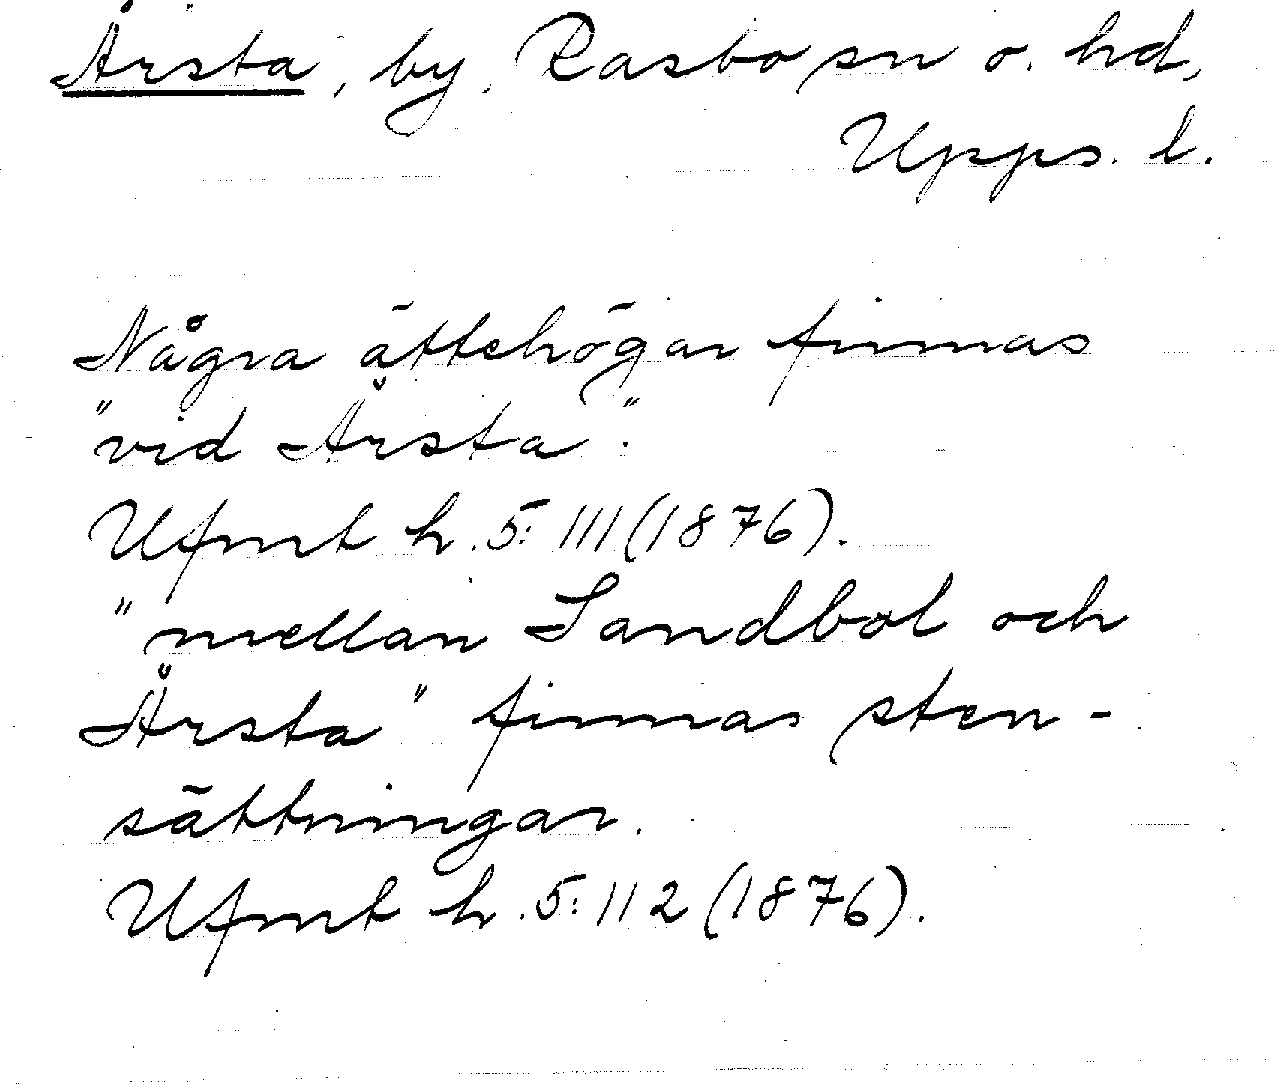 Årsta, by, Rasbo sn o. hd,
Upps. l.
Några ättehögar finnas
"vid Årsta".
Ufmt h. 5: 111 (1876).
"mellan Sandbol och
Årsta" finnas sten-
sättningar.
Ufmt h. 5: 112 (1876).